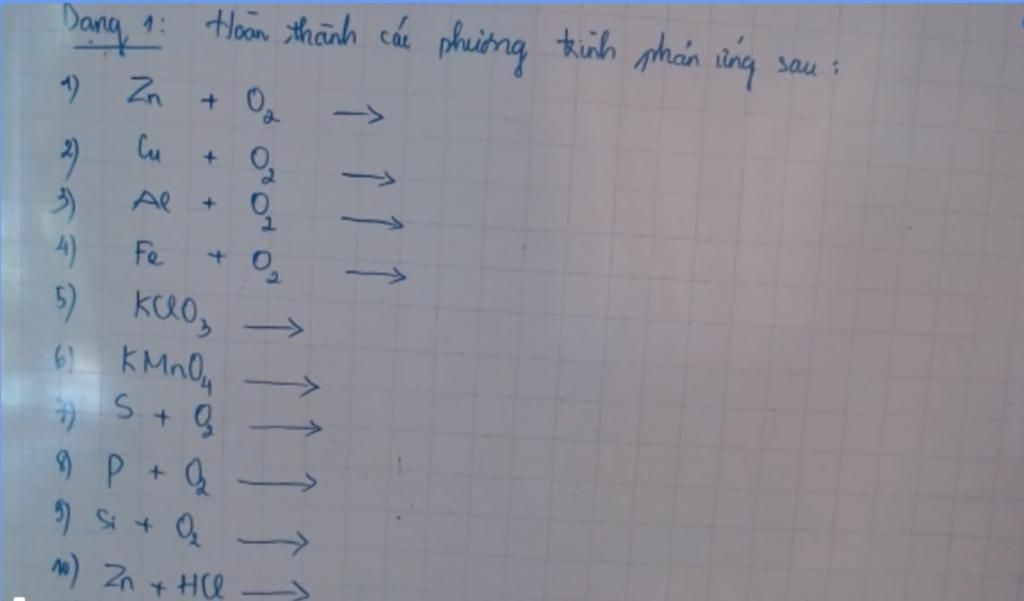 Dạng 1: Hoàn thành các phương trình phản ứng sau:
1) Zn + O₂ →
2) Cu + O₂ →
3) Al + O₂ →
4) Fe + O₂ →
5) KClO₃ →
6) KMnO₄ →
7) S + O₂ →
8) P + O₂ →
9) Si + O₂ →
10) Zn + HCl →